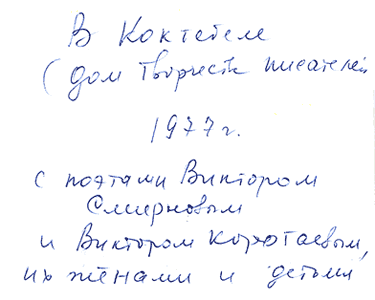 В Коктебеле
(дом творчеств писателей
1977 г.
с поэтами Виктором
Смирновым
и Виктором Коротаевым,
их жёнами и детьми